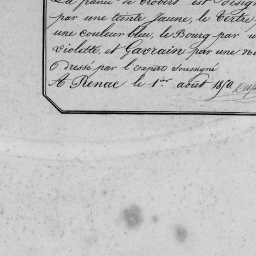 La partie de Trobert est désign
par une teinte Jaune, le Tertre
une couleur bleu, le Bourg par u
Violette, et Gavrain par une
Dressé par l'expert Soussigné
A Renac le 1er août 18